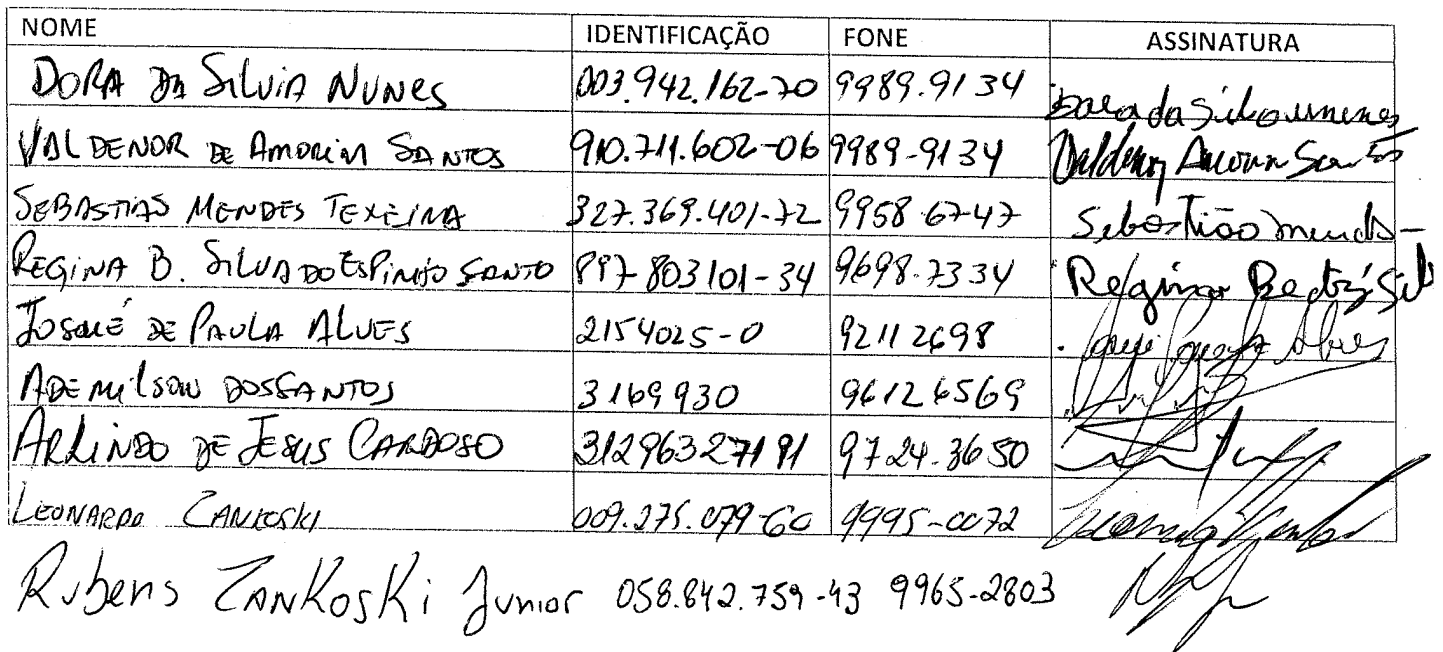 NOME IDENTIFICAÇÃO FONE ASSINATURA
DORA DA SILVIA NUNES 003.942.162-70 9989.9134
VALDENOR DE AMORIM SANTOS 910.711.602-06 9989-9134
SEBASTIAS MENDES TEXEIRA 327.369.401-72 9958-6747 Sebastião
REGINA B. SILVA DO ESPIRITO SANTO 897-803101-34 9698.7334 Regina
JOSUÉ DE PAULA ALVES 2154025-0 92112698 Alves
ADEMILSON DOS SANTOS 3169930 96126569
ARLINDO DE JESUS CARDOSO 31296327191 9724.3650
LEONARDO ZANKOSKI 009.275.079-60 9995-0072
Rubens ZANKOSKI Junior 058.842.759-43 9965-2803